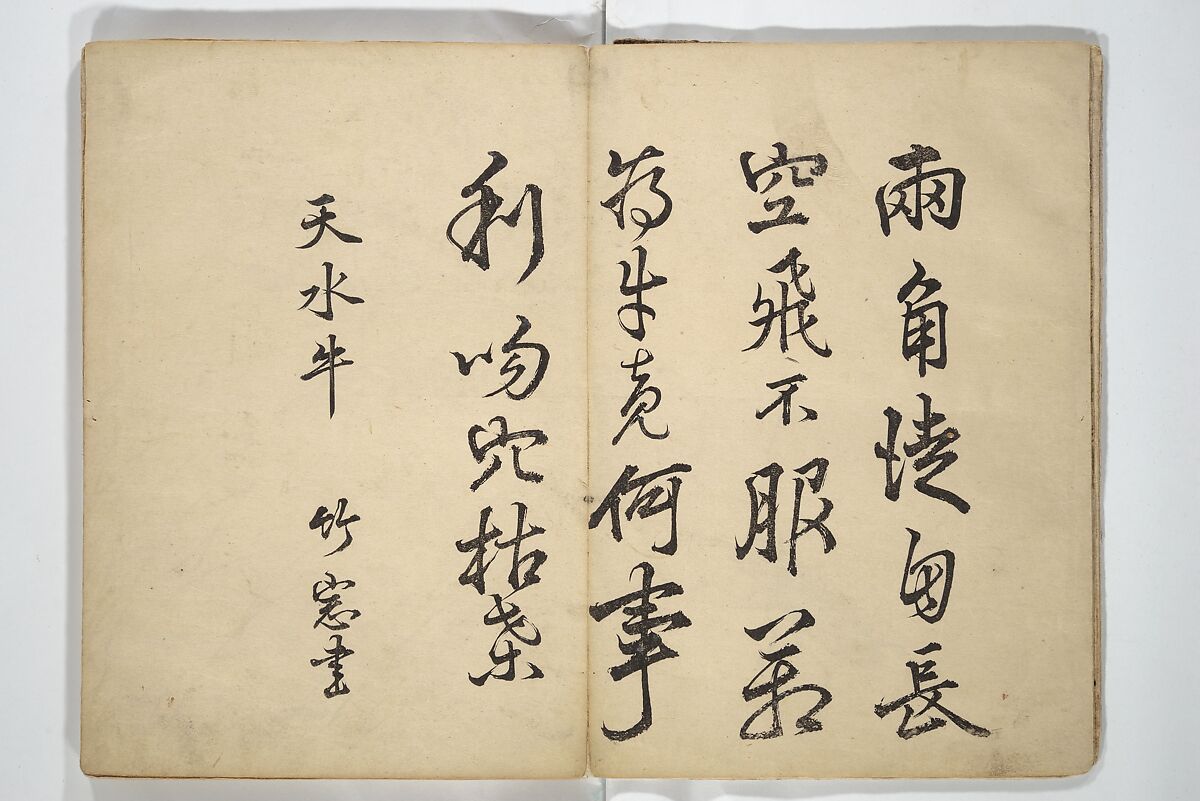 兩角徒自長
空飛不服箱
為牛竟何事
利吻穴枯桑
天水牛 竹窓書